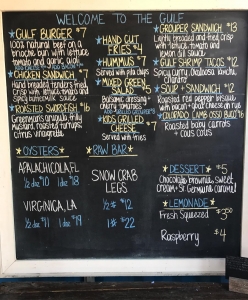 WELCOME TO THE GULF
★GULF BURGER $7
100% natural beef on a
brioche bun with lettuce
tomato and garlic aioli
★CHICKEN SANDWICH $7
Hand breaded tenders fried
crisp with lettuce tomato and
spicy
★ROASTED SWORDFISH $16
mustard roasted potatoes
citrus vinaigrette
★HAND CUT
FRIES $4
★HUMMUS $7
Served with pita chips
★MIXED GREEN
SALAD $5
Balsamic dressing
cherry tomatoes
★KIDS GRILLED
CHEESE $7
Served with fries
★GROUPER SANDWICH $13
Lightly breaded and fried crisp
with lettuce, tomato and
lemon
★GULF SHRIMP TACOS $12
Spicy
salsa
★SOUP + SANDWICH $12
Roasted red pepper bisque
with
★COLORADO LAMB OSSO BUCO $16
Roasted baby carrots
★OYSTERS
APALACHICOLA, FL
1/2 doz $10 1 doz $18
VIRGINICA, LA
1/2 doz $11 1 doz $19
★RAW BAR
SNOW CRAB
LEGS
1/2 # $12
1 # $22
★DESSERT $5
Chocolate brownies, sweet
cream + St Germaine caramel
★LEMONADE
Fresh Squeezed
Raspberry $4